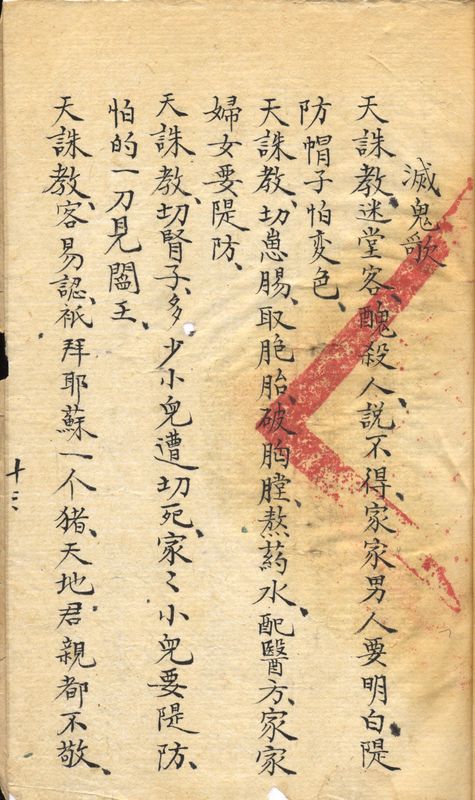 滅鬼歌
天誅教、迷堂客、醜殺人、説不得、家家男人要明白、隄
防帽子怕变色、
天誅教、切崽腸、取胞胎、破胸膛、熬葯水、配醫方、家家
婦女要隄防、
天誅教、切腎子、多少小兒遭切死、家〻小兒要隄防、
怕的一刀見閻王、
天誅教、容易認、祇拜耶蘇一个猪、天地君親都不敬、
十三